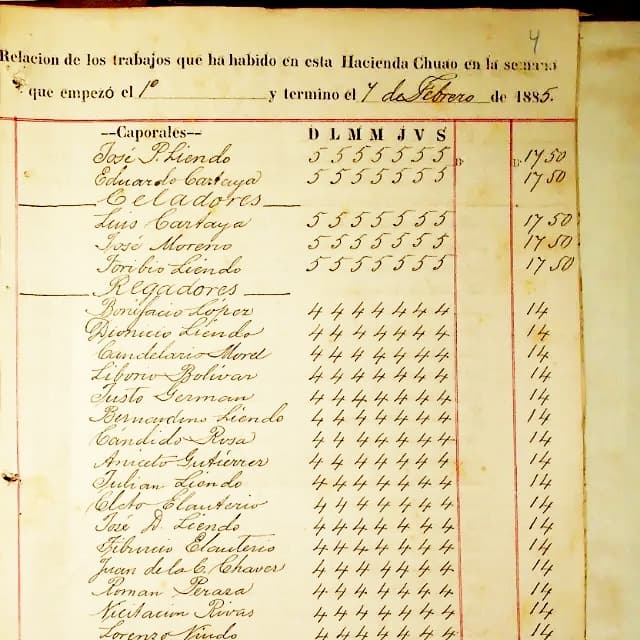 4
Relacion de los trabajos que ha habido en esta Hacienda Chuao en la semana
que empezó el 1º y termino el 7 de Febrero de 1885.
--Caporales-- D L M M J V S
José P. Liendo 5 5 5 5 5 5 5 B. B. 17 50
Eduardo Cartaya 5 5 5 5 5 5 5 17 50
Celadores
Luis Cartaya 5 5 5 5 5 5 5 17 50
José Moreno 5 5 5 5 5 5 5 17 50
Toribio Liendo 5 5 5 5 5 5 5 17 50
Regadores
Bonifacio López 4 4 4 4 4 4 4 14
Dionicio Liendo 4 4 4 4 4 4 4 14
Candelario Morel 4 4 4 4 4 4 4 14
Liborio Bolívar 4 4 4 4 4 4 4 14
Justo German 4 4 4 4 4 4 4 14
Bernardino Liendo 4 4 4 4 4 4 4 14
Candido Rosa 4 4 4 4 4 4 4 14
Aniceto Gutiérrez 4 4 4 4 4 4 4 14
Julian Liendo 4 4 4 4 4 4 4 14
Cleto Elauterio 4 4 4 4 4 4 4 14
José D. Liendo 4 4 4 4 4 4 4 14
Tiburcio Elauterio 4 4 4 4 4 4 4 14
Juan de la C. Chaves 4 4 4 4 4 4 4 14
Roman Peraza 4 4 4 4 4 4 4 14
Vicitacion Rivas 4 4 4 4 4 4 4 14
Lorenzo 4 4 4 4 4 4 4 14